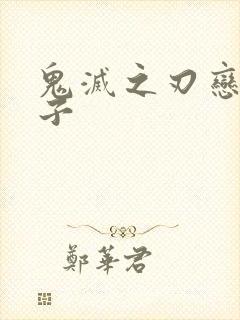 鬼滅之刃戀
子
鄭華君